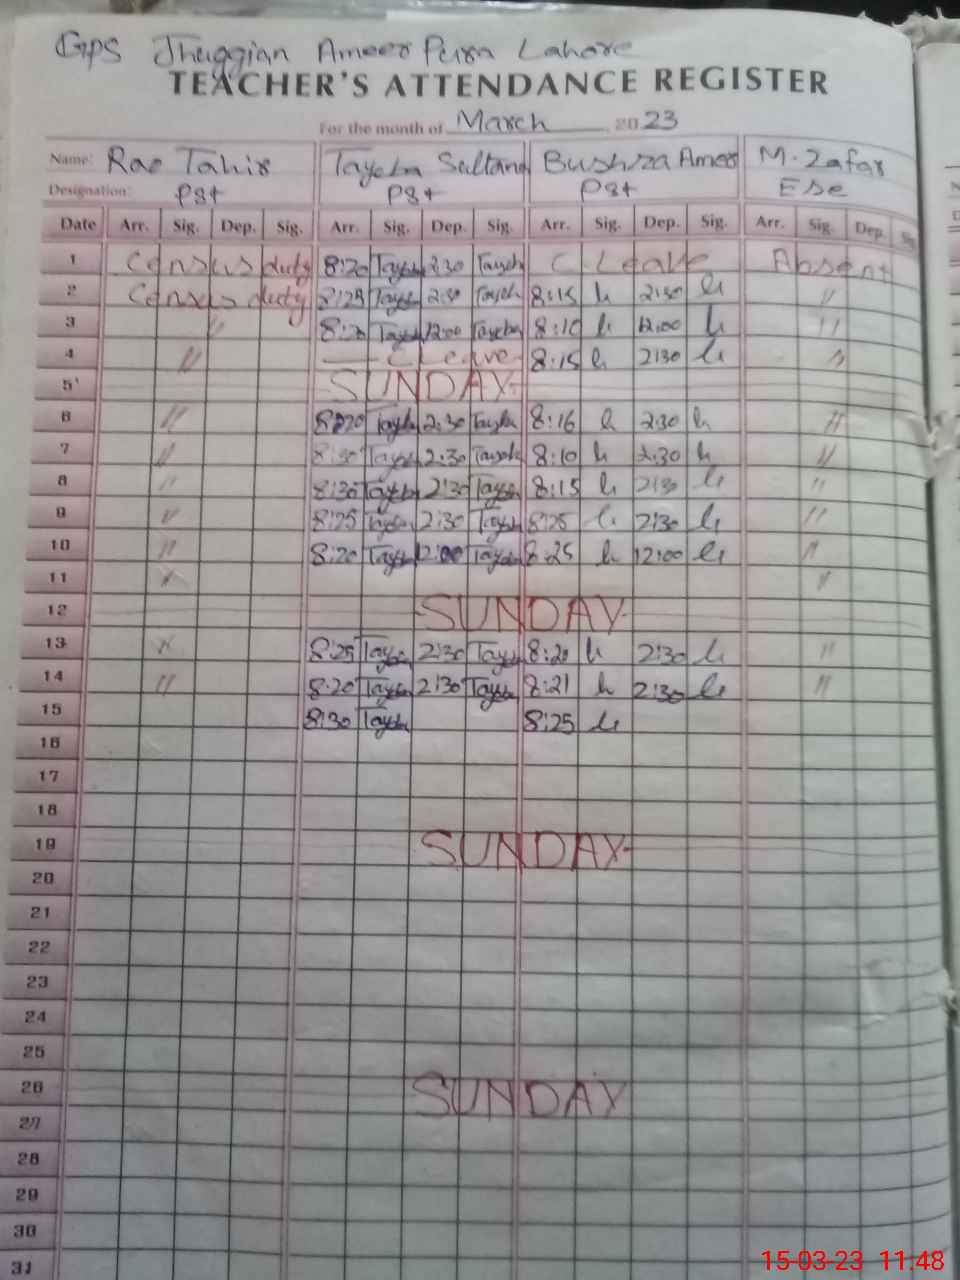 GPS Jhuggian Ameer Pura Lahore
TEACHER'S ATTENDANCE REGISTER
For the month of March 2023
Name: Rao Tahir Tayeba Sultana Bushra Ameer M. Zafar
Designation: PST PST PST ESE
Date Arr. Sig. Dep. Sig. Arr. Sig. Dep. Sig. Arr. Sig. Dep. Sig. Arr. Sig. Dep.
1 Census duty 8:20 Tayeba 2:30 Tayeba C Leave Absent
2 Census duty 8:25 Tayeba 2:30 Tayeba 8:15 2:30 "
3 " 8:20 Tayeba 12:00 Tayeba 8:10 12:00 "
4 " C Leave 8:15 2:30 "
5 SUNDAY
6 " 8:20 Tayeba 2:30 Tayeba 8:16 2:30 "
7 " 8:30 Tayeba 2:30 Tayeba 8:10 2:30 "
8 " 8:30 Tayeba 2:30 Tayeba 8:15 2:30 "
9 " 8:25 Tayeba 2:30 Tayeba 8:25 2:30 "
10 " 8:20 Tayeba 12:00 Tayeba 8:25 12:00 "
11 " "
12 SUNDAY
13 " 8:25 Tayeba 2:30 Tayeba 8:20 2:30 "
14 " 8:20 Tayeba 2:30 Tayeba 8:21 2:30 "
15 8:30 Tayeba 8:25
16
17
18
19 SUNDAY
20
21
22
23
24
25
26 SUNDAY
27
28
29
30
31
15-03-23 11:48